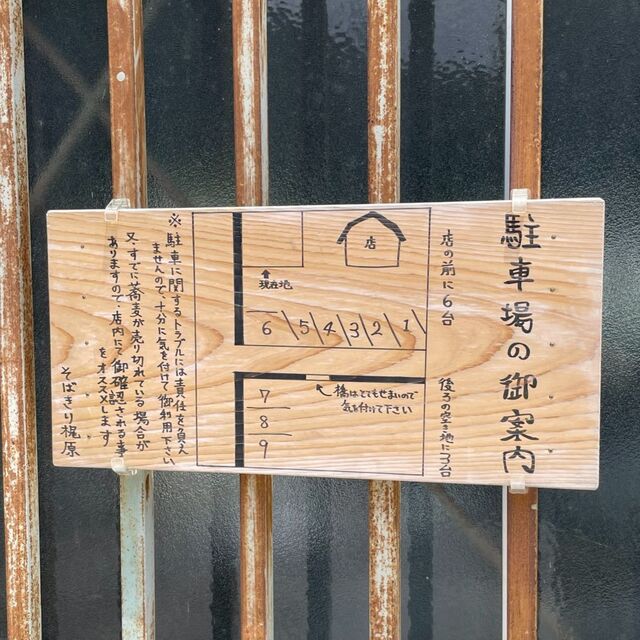 駐車場の御案内
店の前に6台
後ろの空き地に3台
店
↑
現在地
6 5 4 3 2 1
橋はとてもせまいので
気を付けて下さい
7
8
9
※駐車に関するトラブルには責任を負え
ませんので、十分に気を付けて御利用下さい
又、すでに蕎麦が売り切れている場合が
ありますので、店内にて御確認される事
をオススメ致します
そばきり梶原